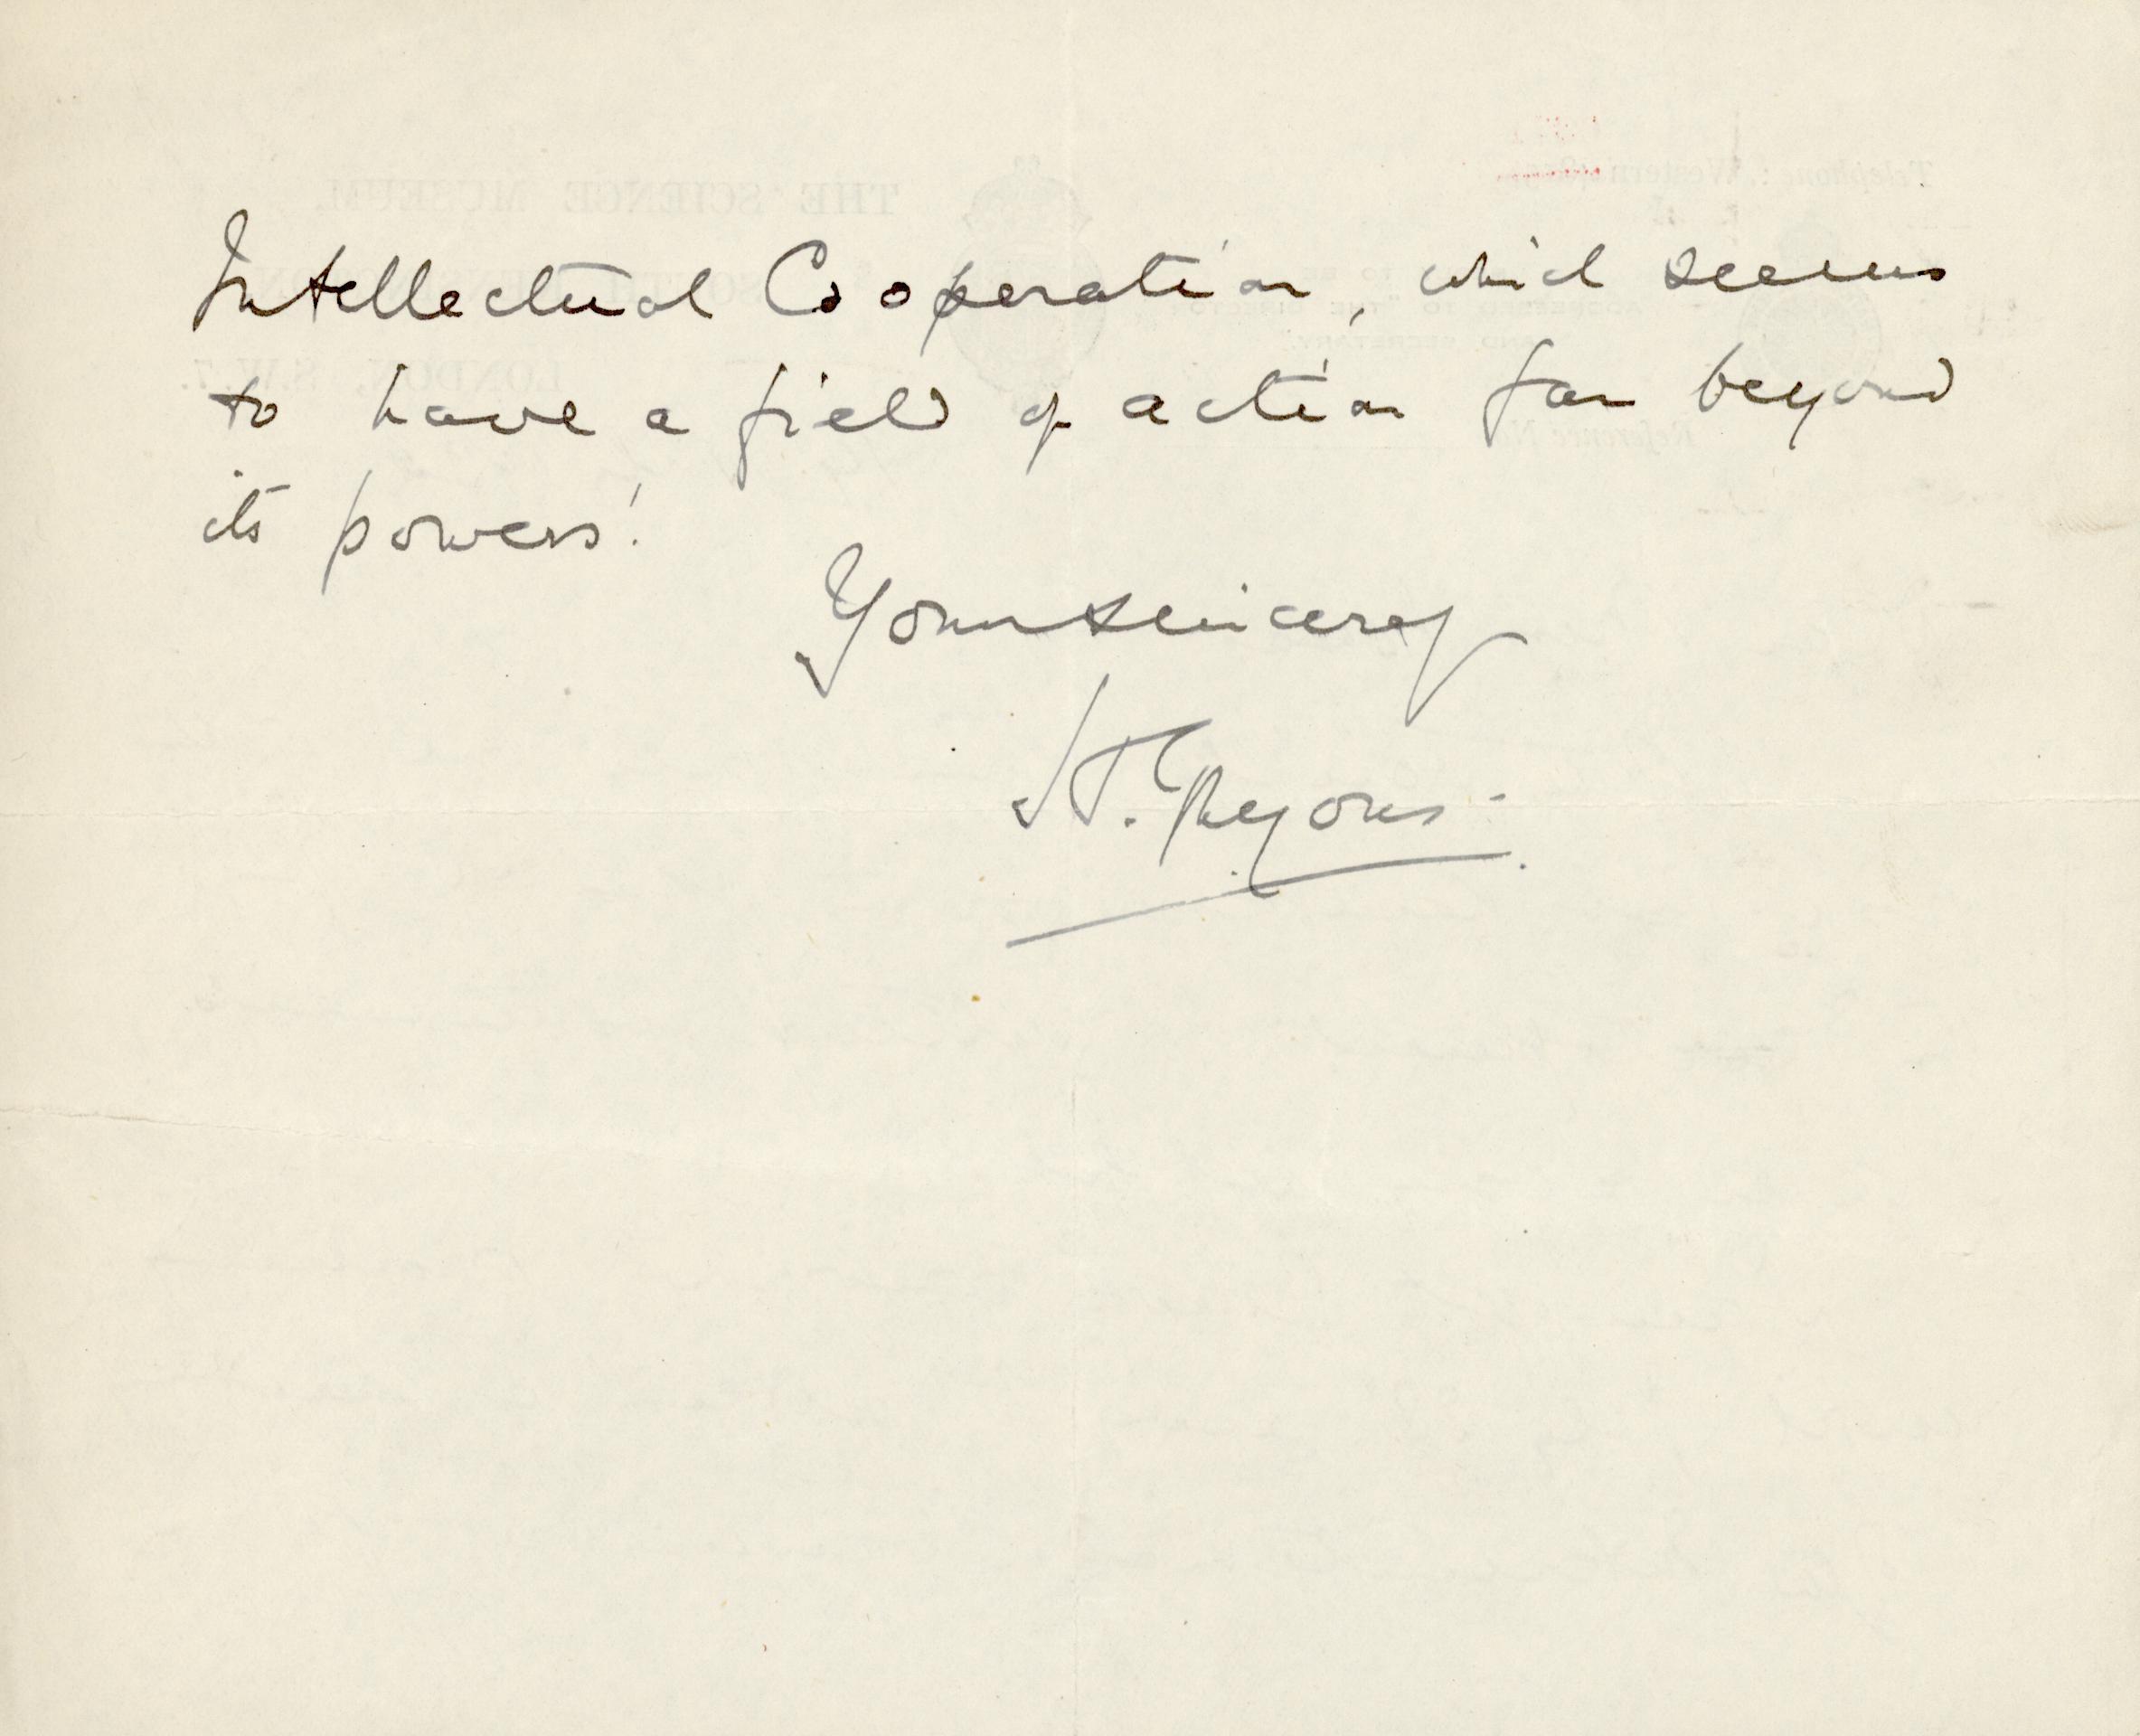 Intellectual Cooperation, which seems
to have a field of action far beyond
its powers!
Yours sincerely
H. G. Lyons.